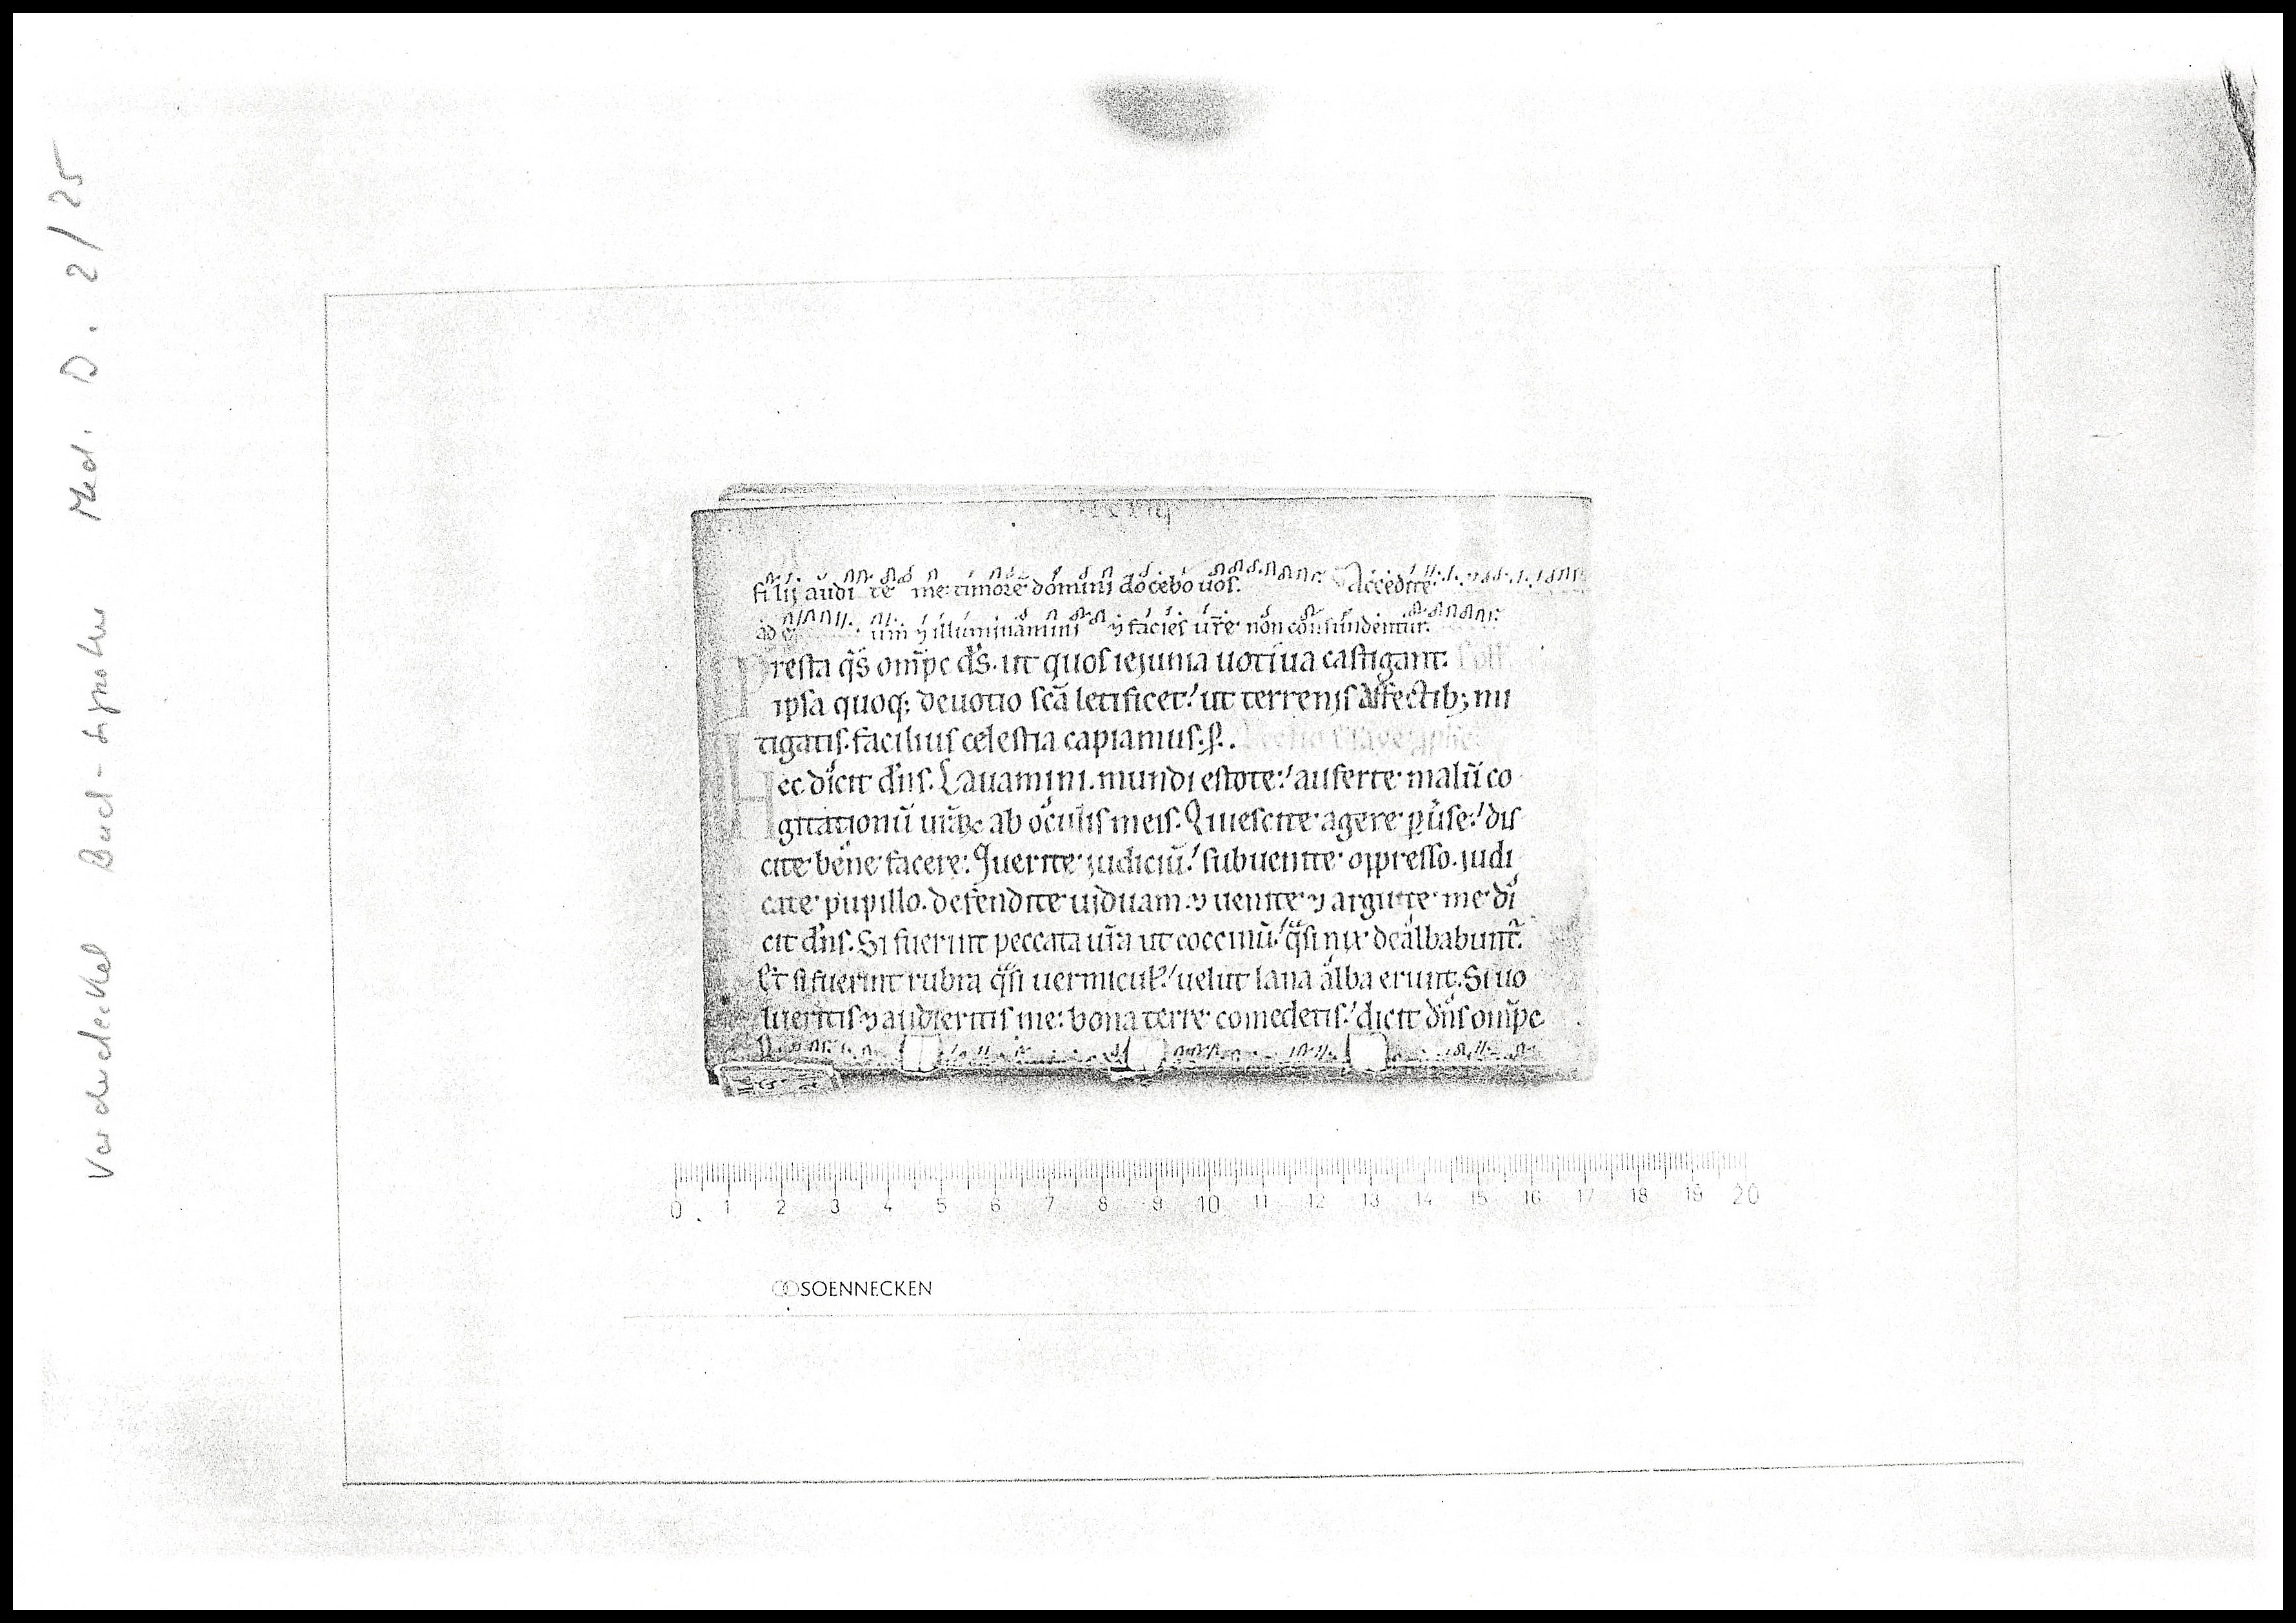 Vorderdeckel Med. D. 2/25
filij audi te me: timorē domini docebo uos. Accedite
ad um ⁊ illuminamini ⁊ facies ur̄e non confundentur.
Presta q̄s om̄pc d̄s. ut quos ieiunia uotiua castigant.
ipsa quoq; deuotio sc̄a letificet. ut terrenis affectib; mi
tigatis. facilius celestia capiamus. p̱.
Hec dicit dn̄s. Lauamini. mundi estote. auferte malū co
gitationū ur̄aꝝ ab oculis meis. Quiescite agere ꝑuse. dis
cite bene facere. Querite judiciū. subuenite oppresso. judi
cate pupillo. defendite uiduam. ⁊ uenite ⁊ arguite me di
cit dn̄s. Si fuerint peccata ur̄a ut coccinū. q̄si nix dealbabunt᷑.
Et si fuerint rubra q̄si uermicul. uelut lana alba erunt. Si uo
lueritis ⁊ audieritis me: bona terre comedetis. dicit dn̄s om̄pc
0 1 2 3 4 5 6 7 8 9 10 11 12 13 14 15 16 17 18 19 20
SOENNECKEN